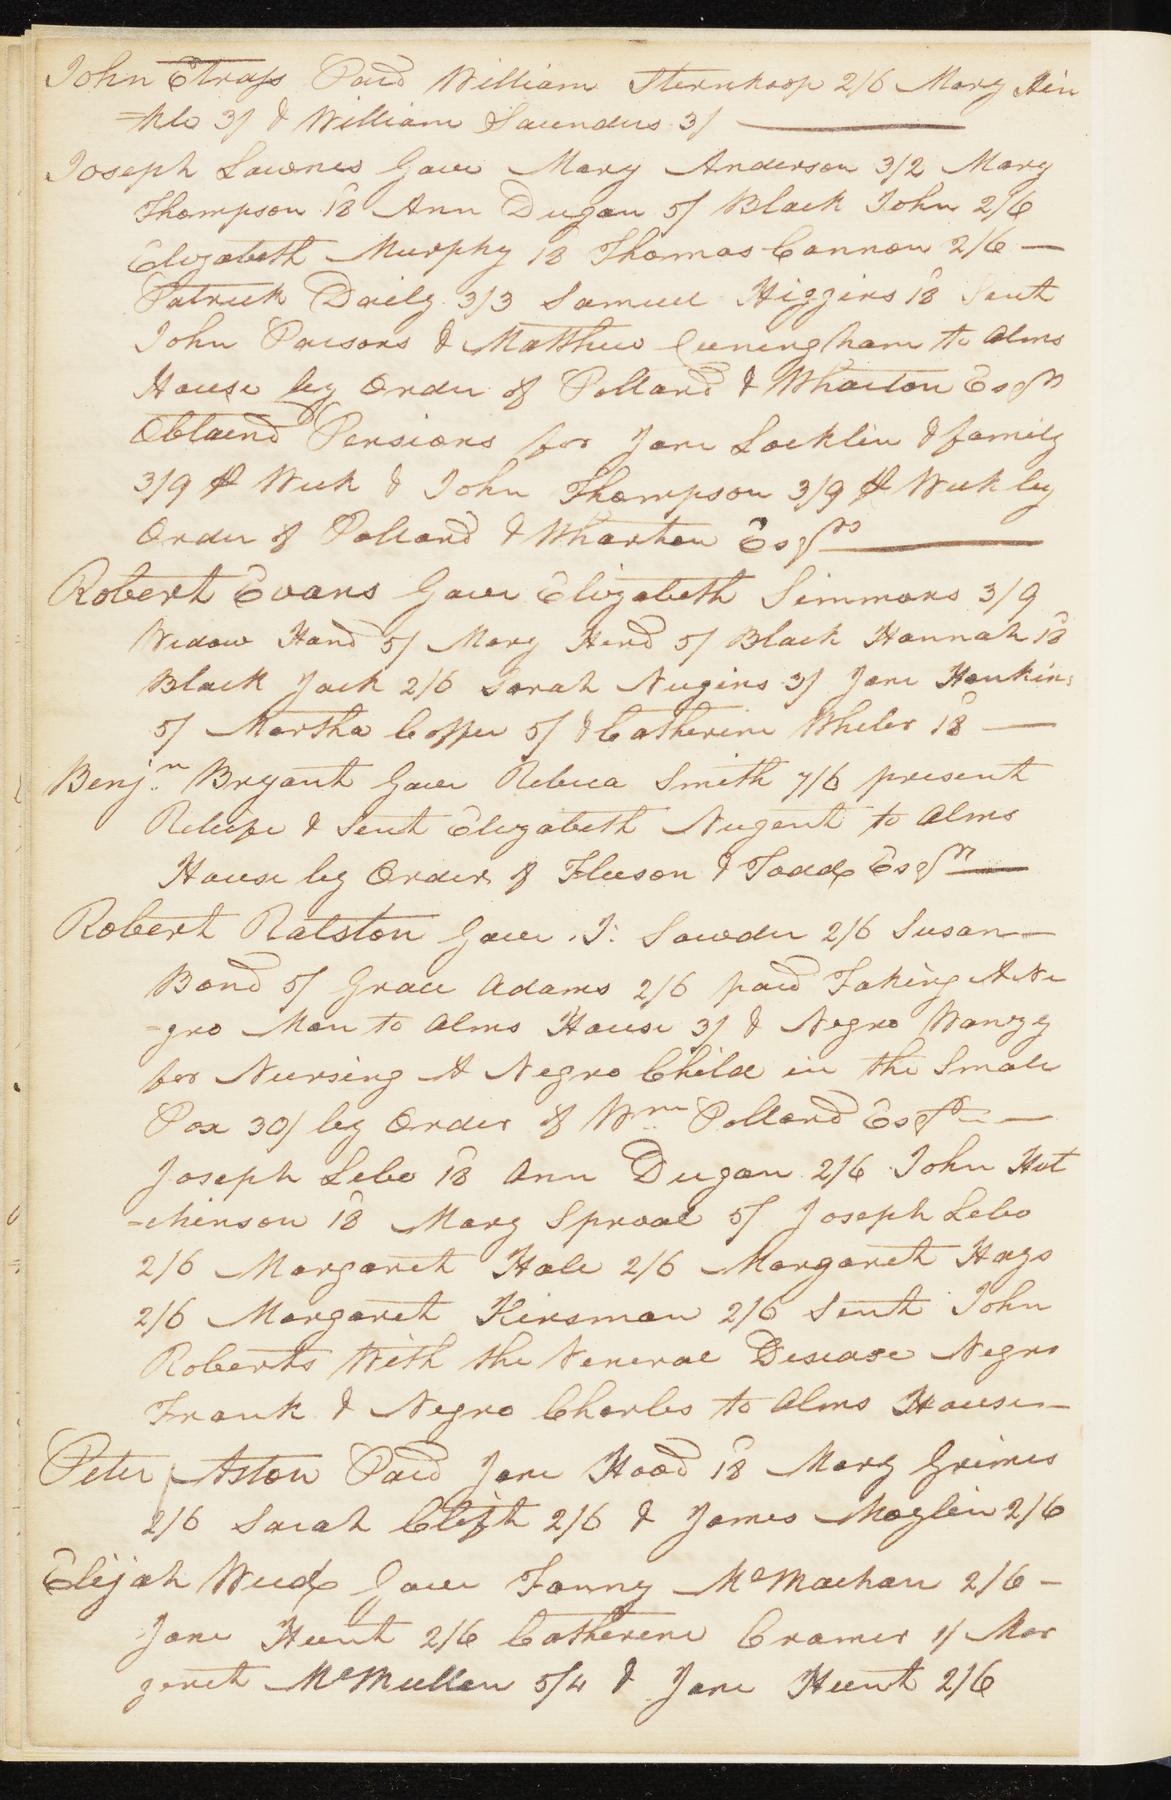 John Strass Paid William Sternkoop 2/6 Mary Hin
=kle 3/ & William Saunders 3/
Joseph Lownes Gave Mary Anderson 3/2 Mary
Thompson 18 Ann Dugan 5/ Black John 2/6
Elizabeth Murphy 18 Thomas Cannon 2/6 —
Patrick Daily 3/3 Samuel Higgins 18 Sent
John Parsons & Matthew Cuningham to Alms
House by Order of Pollard & Wharton Esqrs
Obtaind Pensions for Jane Locklin & family
3/9 ⅌ Week & John Thompson 3/9 ⅌ Week by
Order of Pollard & Wharton Esqrs
Robert Evans Gave Elizabeth Simmons 3/9
Widow Hand 5/ Mary Herd 5/ Black Hannah 18
Black Jack 2/6 Sarah Nugins 3/ Jane Hankins
5/ Martha Coffee 5/ & Catherine Wheler 18 —
Benjn Bryant Gave Rebeca Smith 7/6 present
Releife & Sent Elizabeth Nugent to Alms
House by Order of Fleeson & Todd Esqrs
Robert Ralston Gave J: Sowder 2/6 Susan
Bond 5/ Grace Adams 2/6 paid Taking A Ne
-gro Man to Alms House 3/ & Negro Nanzy
for Nursing A Negro Child in the Smale
Pox 30/ by Order of Wm Pollard Esqr —
Joseph Lebo 18 Ann Dugan 2/6 John Hut
-chinson 18 Mary Sproal 5/ Joseph Lebo
2/6 Margaret Hale 2/6 Margaret Hays
2/6 Margaret Kinsman 2/6 Sent John
Roberts With the Veneral Disease Negro
Frank & Negro Charles to Alms House
Peter Aston Paid Jane Hood 18 Mary Grimes
2/6 Sarah Clifth 2/6 & James Maglin 2/6
Elijah Weed Gave Fanny McMachan 2/6 —
Jane Hunt 2/6 Catherine Cramer 1/ Mar
garet McMullen 5/4 & Jane Hunt 2/6